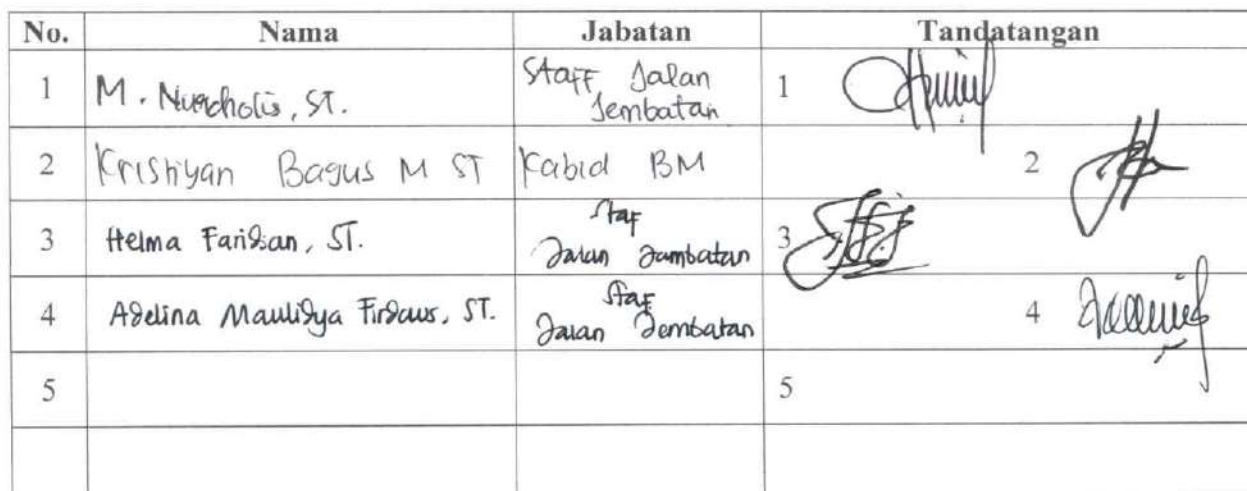 No. Nama Jabatan Tandatangan
1 M. Nurcholis, ST. Staff Jalan Jembatan 1
2 Kristiyan Bagus M ST Kabid BM 2
3 Helma Faridian, ST. Staf Jalan Jambatan 3
4 Adelina Maulidya Firdaus, ST. Staf Jalan Jembatan 4
5 5